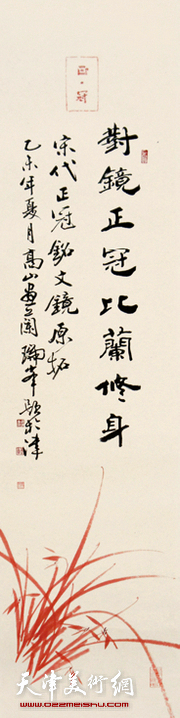 對鏡正冠比蘭修身
宋代正冠銘文鏡原拓
乙未年夏月高山畫蘭瑞峯題於津
正·冠
天津美術網
www.022meishu.com